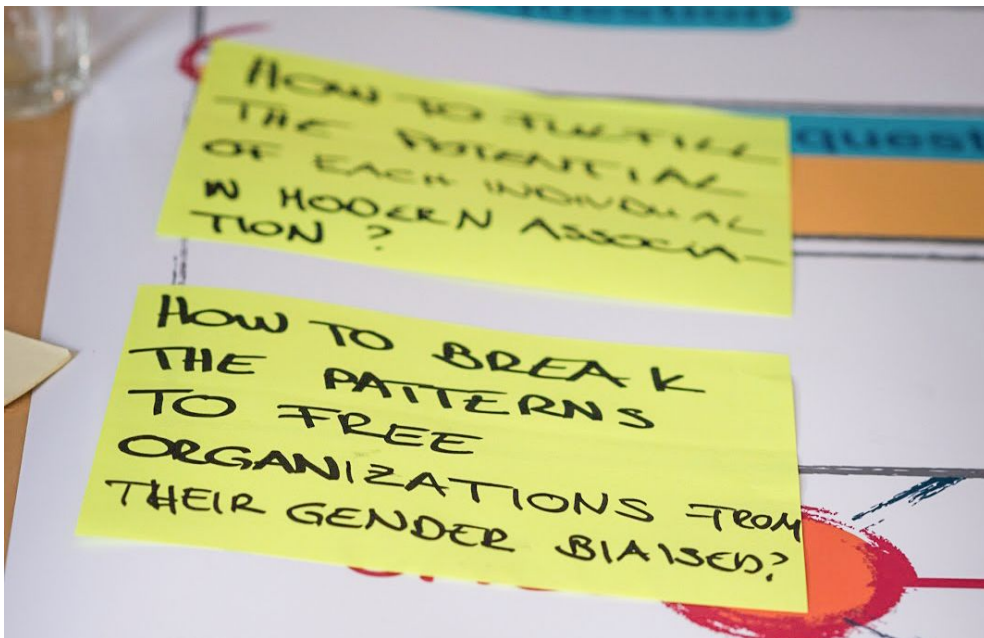 question
HOW TO FULFILL
THE POTENTIAL
OF EACH INDIVIDUAL
IN MODERN ASSOCIA-
TION ?
quest
HOW TO BREAK
THE PATTERNS
TO FREE
ORGANIZATIONS FROM
THEIR GENDER BIAISED?